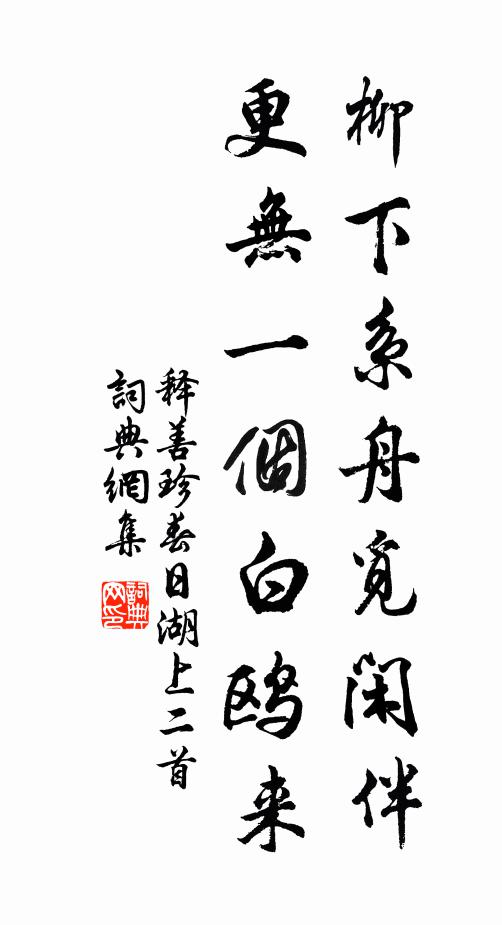 柳下系舟觅闲伴
更無一個白鸥来
释善珍春日湖上二首
詞典網集
詞典网印